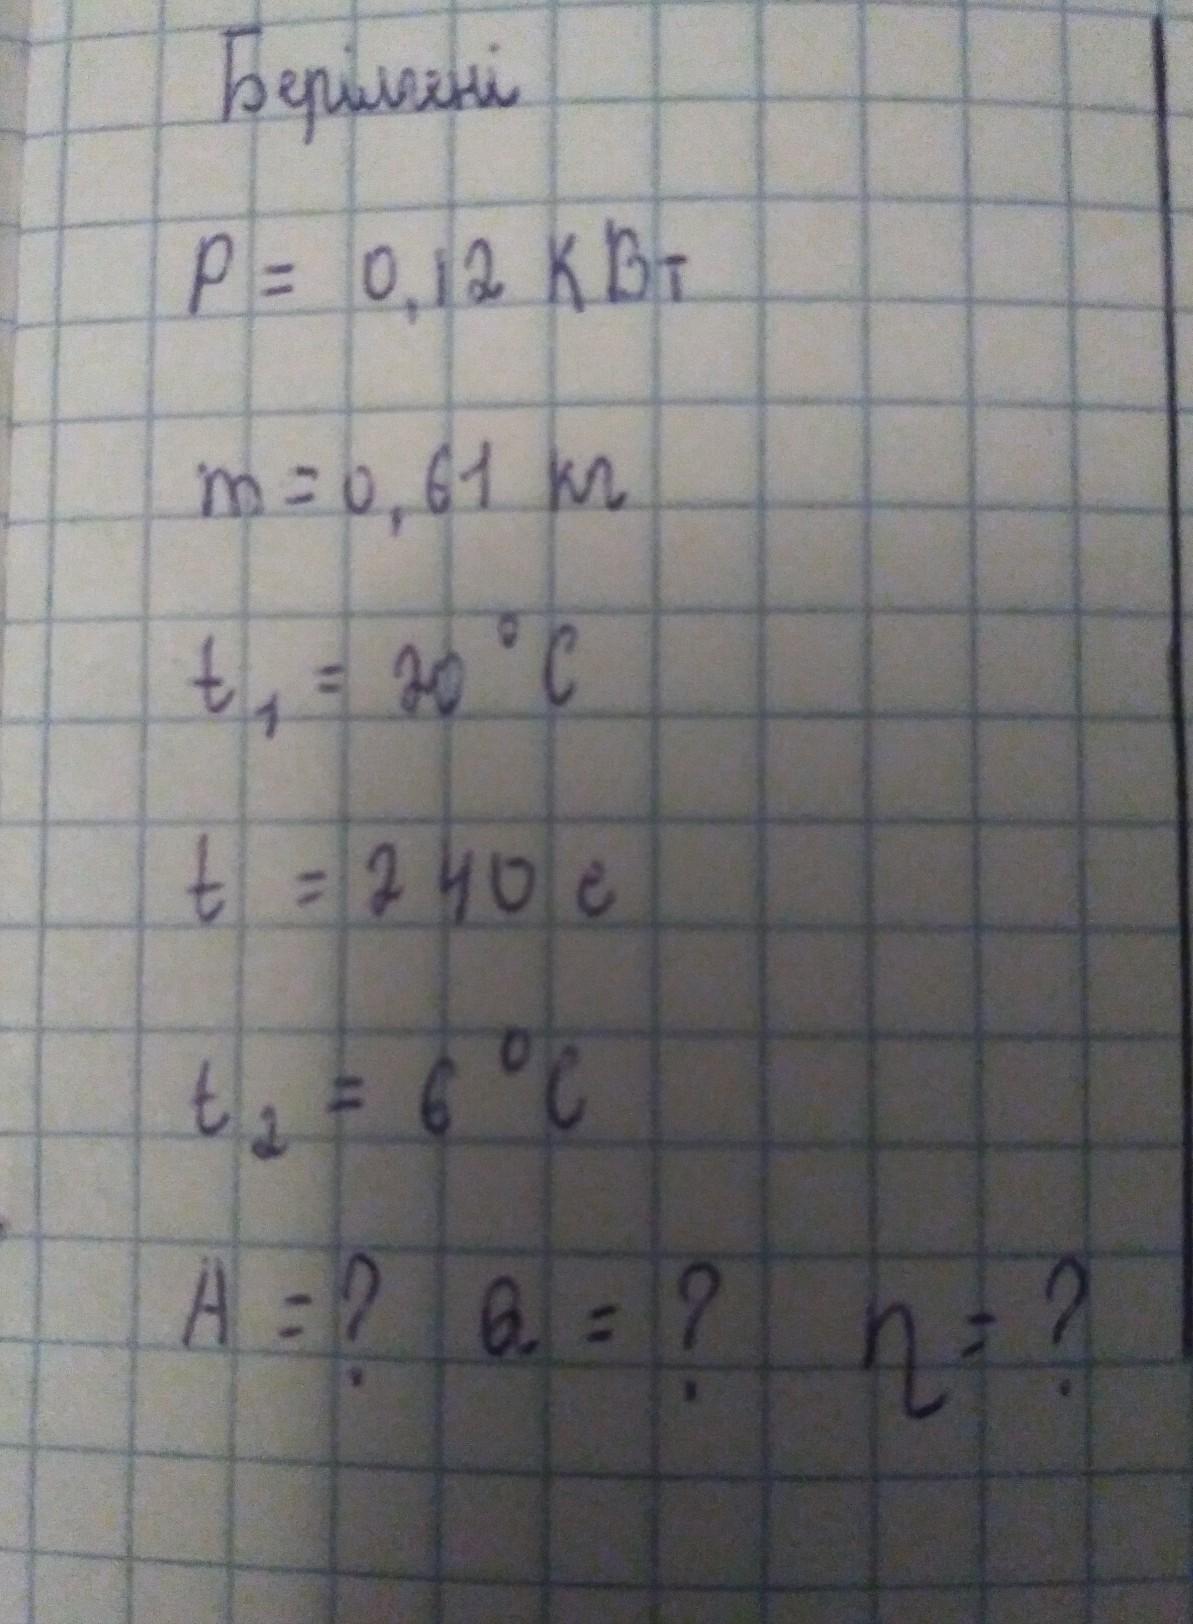 Берілгені
P = 0,12 КВт
m = 0,61 кг
t₁ = 20 °C
t = 240 с
t₂ = 6 °C
A = ? Q = ? η = ?